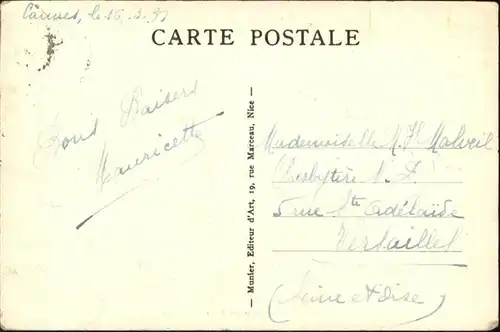 Cannes, le 16
CARTE POSTALE
Bons Baisers
Mauricette
— Munier, Editeur d'Art, 19, rue Marceau, Nice —
Mademoiselle M.
Presbytère N. D.
5 rue Ste Adélaïde
Versailles
(Seine et Oise)